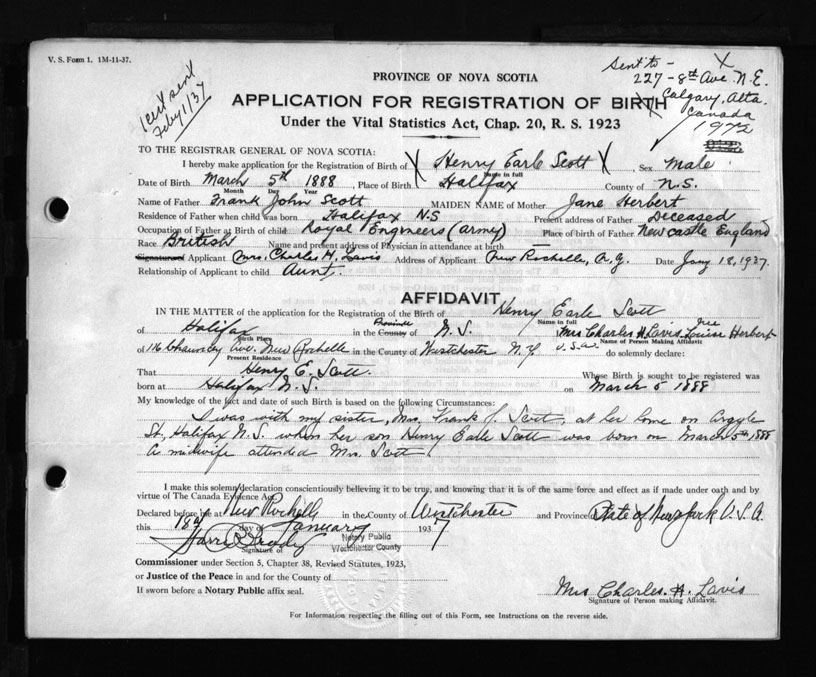 V. S. Form 1. 1M-11-37.
Sent to - X
227-8th Ave. N.E.
Calgary, Alta.
Canada
1972
Feby 1/37
PROVINCE OF NOVA SCOTIA
APPLICATION FOR REGISTRATION OF BIRTH
Under the Vital Statistics Act, Chap. 20, R. S. 1923
TO THE REGISTRAR GENERAL OF NOVA SCOTIA:
I hereby make application for the Registration of Birth of X Henry Earle Scott X, Sex Male
Name in full
Date of Birth March 5th 1888, Place of Birth Halifax County of N.S.
Month Day Year
Name of Father Frank John Scott MAIDEN NAME of Mother Jane Herbert
Residence of Father when child was born Halifax N.S Present address of Father Deceased
Occupation of Father at Birth of child Royal Engineers (army) Place of birth of Father Newcastle England
Race British Name and present address of Physician in attendance at birth —
Signature of Applicant Mrs. Charles H. Lavis Address of Applicant New Rochelle, N.Y. Date Jany 18, 1937.
Relationship of Applicant to child Aunt.
AFFIDAVIT
IN THE MATTER of the application for the Registration of the Birth of Henry Earle Scott
Name in full
of Halifax in the County Province of N.S. Mrs Charles H Lavis nee Louise Herbert
Birth Place Name of Person Making Affidavit
of 116 Chauncey Ave. New Rochelle in the County of Westchester N.Y. U.S.A. do solemnly declare:
Present Residence
That Henry E. Scott. Whose Birth is sought to be registered was
born at Halifax N.S. on March 5 1888
My knowledge of the fact and date of such Birth is based on the following Circumstances:
I was with my sister, Mrs. Frank J. Scott, at her home on Argyle
St, Halifax N.S. when her son Henry Earle Scott was born on March 5th 1888
A midwife attended Mrs. Scott.
I make this solemn declaration conscientiously believing it to be true, and knowing that it is of the same force and effect as if made under oath and by
virtue of The Canada Evidence Act.
Declared before me at New Rochelle in the County of Westchester and Province State of New York U.S.A.
this 18th day of January 1937
Notary Public
Westchester County
Signature of
Commissioner under Section 5, Chapter 38, Revised Statutes, 1923,
or Justice of the Peace in and for the County of
If sworn before a Notary Public affix seal.
Mrs Charles H. Lavis
Signature of Person making Affidavit.
For Information respecting the filling out of this Form, see Instructions on the reverse side.